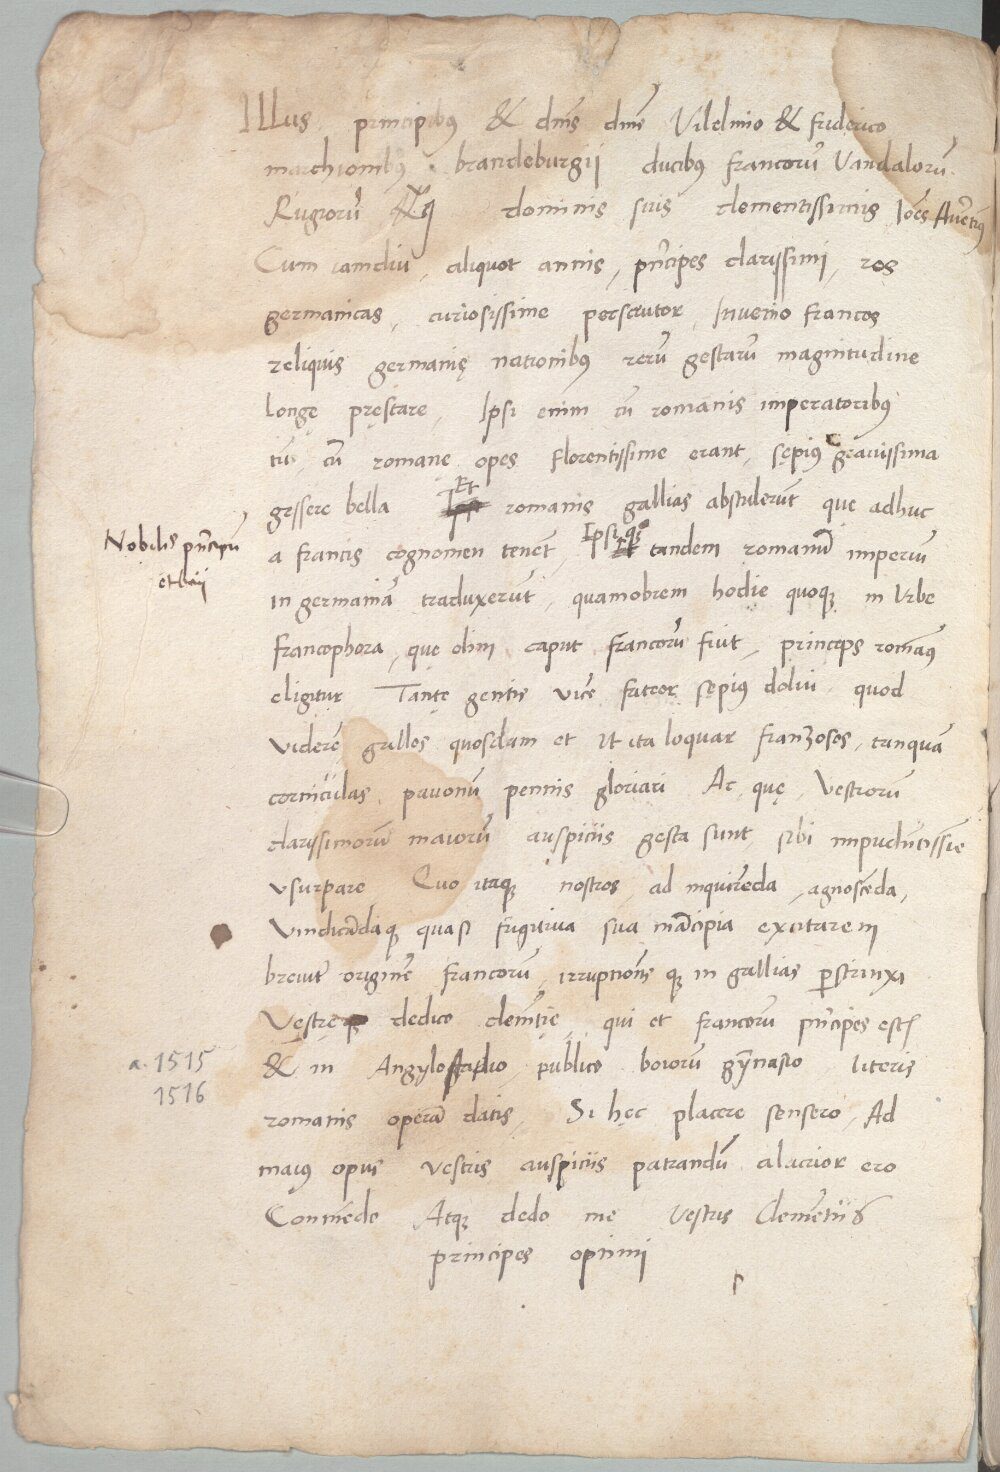 Illus principibꝰ & dn̄is dn̄is Vilelmo & friderico
marchionibꝰ brandeburgii ducibꝰ francorū Vandalorū
Rugiorū dominis suis clementissimis Ioēs Avētinꝰ
Cum iamdiu, aliquot annis, prīcipes clarissimi, res
germanicas, curiosissime perscrutor, Invenio francos
reliquis germanię nationibꝰ rerū gestarū magnitudine
longę pręstare, Ipsi enim cū romanis imperatoribꝰ
tū, cū romane opes florentissime erant, sępius gravissima
gessere bella Et romanis gallias abstulerūt que adhuc
Nobilis prīcipū
etbrii
a francis cognomen tenēt, Ipsi qꝫ tandem romanū imperiū
in germaniā traduxerūt, quamobrem hodie quoqꝫ in Urbe
francophora, quę olim caput francorū fuit, princeps romāꝰ
eligitur Tantę gentis vicē fateor sępius dolui quod
viderē gallos quosdam et Ut ita loquar franzosos, tanquā
corniculas pavonū pennis gloriari Ac, quę, Vestrorū
clarissimorū maiorū auspiciis gesta sunt, sibi impudētissīe
usurpare Quo itaqꝫ nostros, ad inquirēda, agnoscēda,
Vindicādaqꝫ quasi fugitiva sua mācipia excitarem
breviter originē francorū, irruptionēsqꝫ in gallias perstrinxi
Vestręqꝫ dedico clemētię, qui et francorū prīcipes estis
a. 1515
1516
& in Angylostadio, publico boiorū gȳnasio literis
romanis operā datis, Si hęc placere sensero, Ad
maiꝰ opus vestris auspiciis patrandū alacrior ero
Commēdo Atqꝫ dedo me Vestris Clemētiis
principes optimi